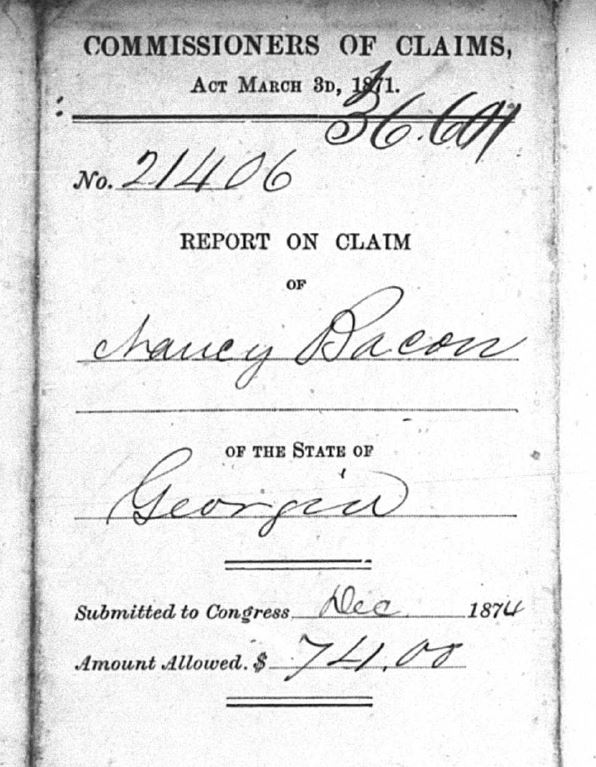 COMMISSIONERS OF CLAIMS,
ACT MARCH 3D, 1871.
No. 21406
REPORT ON CLAIM
OF
Nancy Bacon
OF THE STATE OF
Georgia
Submitted to Congress Dec 1874
Amount Allowed. $ 741.00